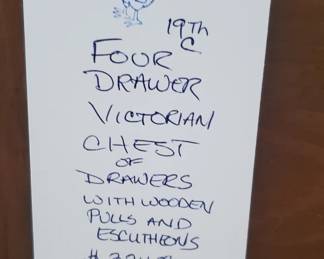 19TH
C
FOUR
DRAWER
VICTORIAN
CHEST
OF
DRAWERS
WITH WOODEN
PULLS AND
ESCUTHEONS
#